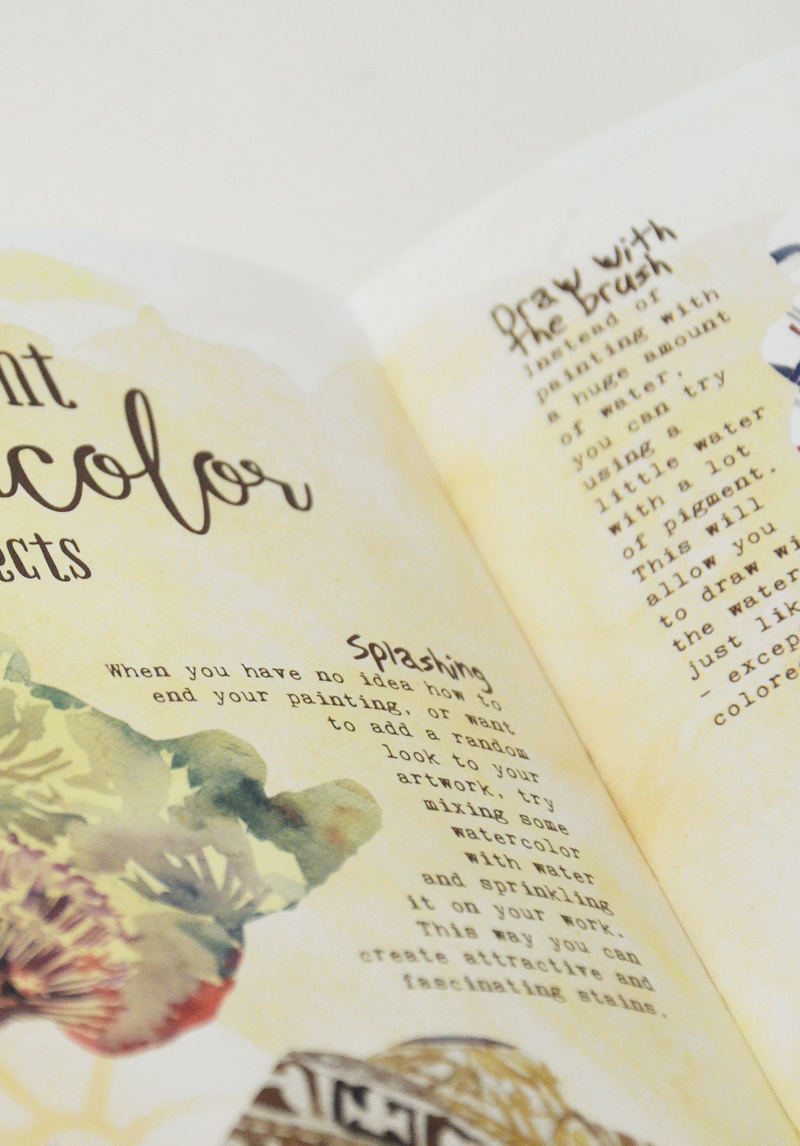 nt
color
ects
Splashing
When you have no idea how to
end your painting, or want
to add a random
look to your
artwork, try
mixing some
watercolor
with water
and sprinkling
it on your work.
This way you can
create attractive and
fascinating stains.
Draw with
the brush
Instead of
painting with
a huge amount
of water,
you can try
using a
little water
with a lot
of pigment.
This will
allow you
to draw wi
the water
just lik
- excep
colore